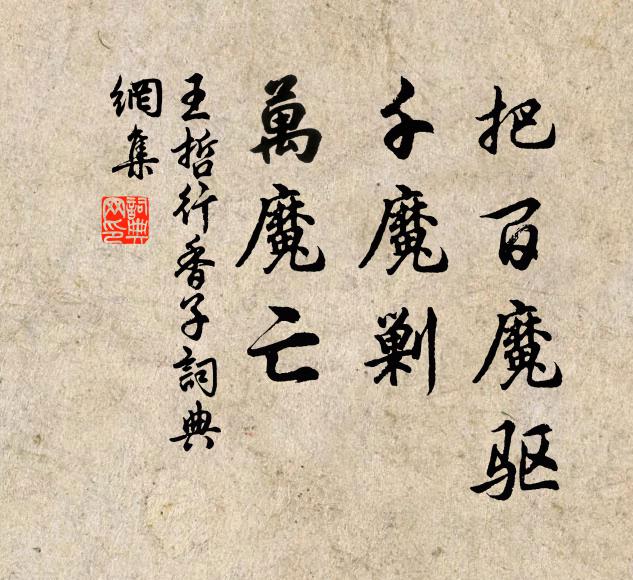 把百魔驱
千魔剿
萬魔亡
王哲行香子詞典
網集
詞典
网印